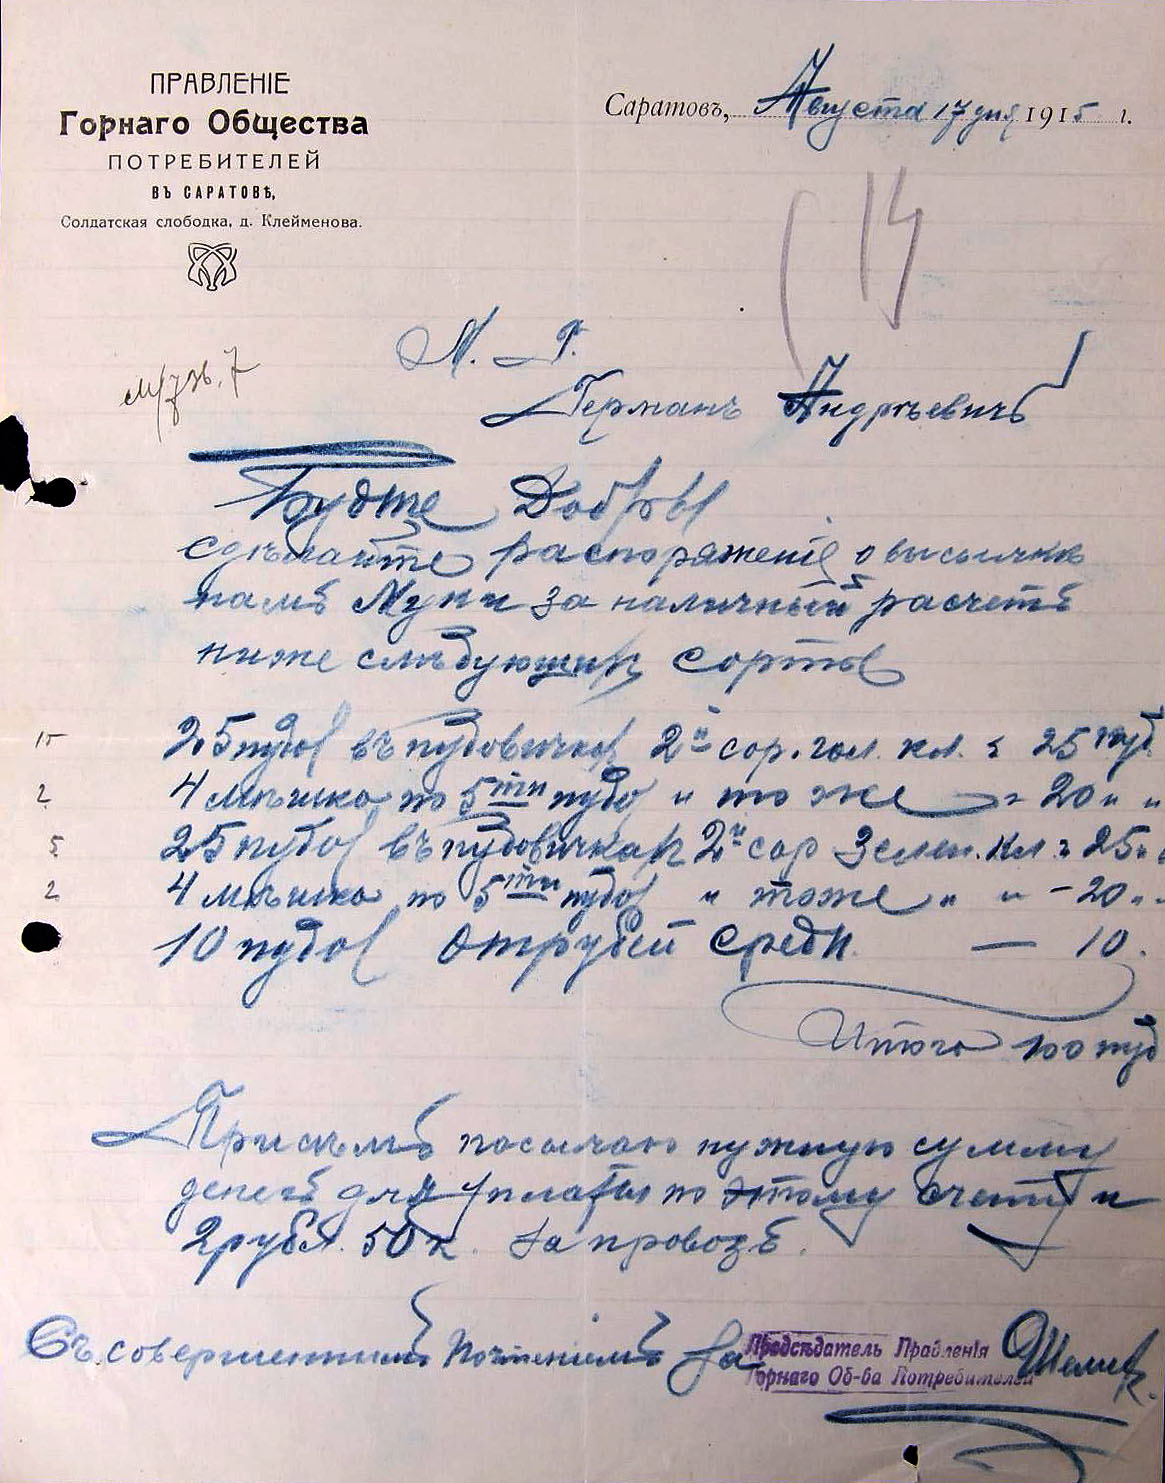 ПРАВЛЕНІЕ
Горнаго Общества
ПОТРЕБИТЕЛЕЙ
ВЪ САРАТОВѢ,
Солдатская слободка, д. Клейменова.
Саратовъ, Августа 17 дня 1915 г.
14
М. Г.
Германъ Андрѣевичъ
Будте Добры
сдѣлайте распоряженіе о высылкѣ
намъ Муки за наличный расчетъ
ниже слѣдующих сортов
15 25 пудов въ пудовичках 2й сор. гол. кл. = 25 пуд
2 4 мѣшка по 5ти пудов " то же = 20 " "
5 25 пудов въ пудовичках 2й сор Зелен. Кл = 25 "
2 4 мѣшка по 5ти пудов " тоже " " - 20 "
10 пудов отрубей средн. — 10.
Итого 100 пуд
При семъ посылаю нужную сумму
денегъ для уплаты по этому счету и
2 рубл. 50 к. за провозъ.
Съ совершеннымъ Почтеніемъ За
Предсѣдатель Правленія
Горнаго Об-ва Потребителей